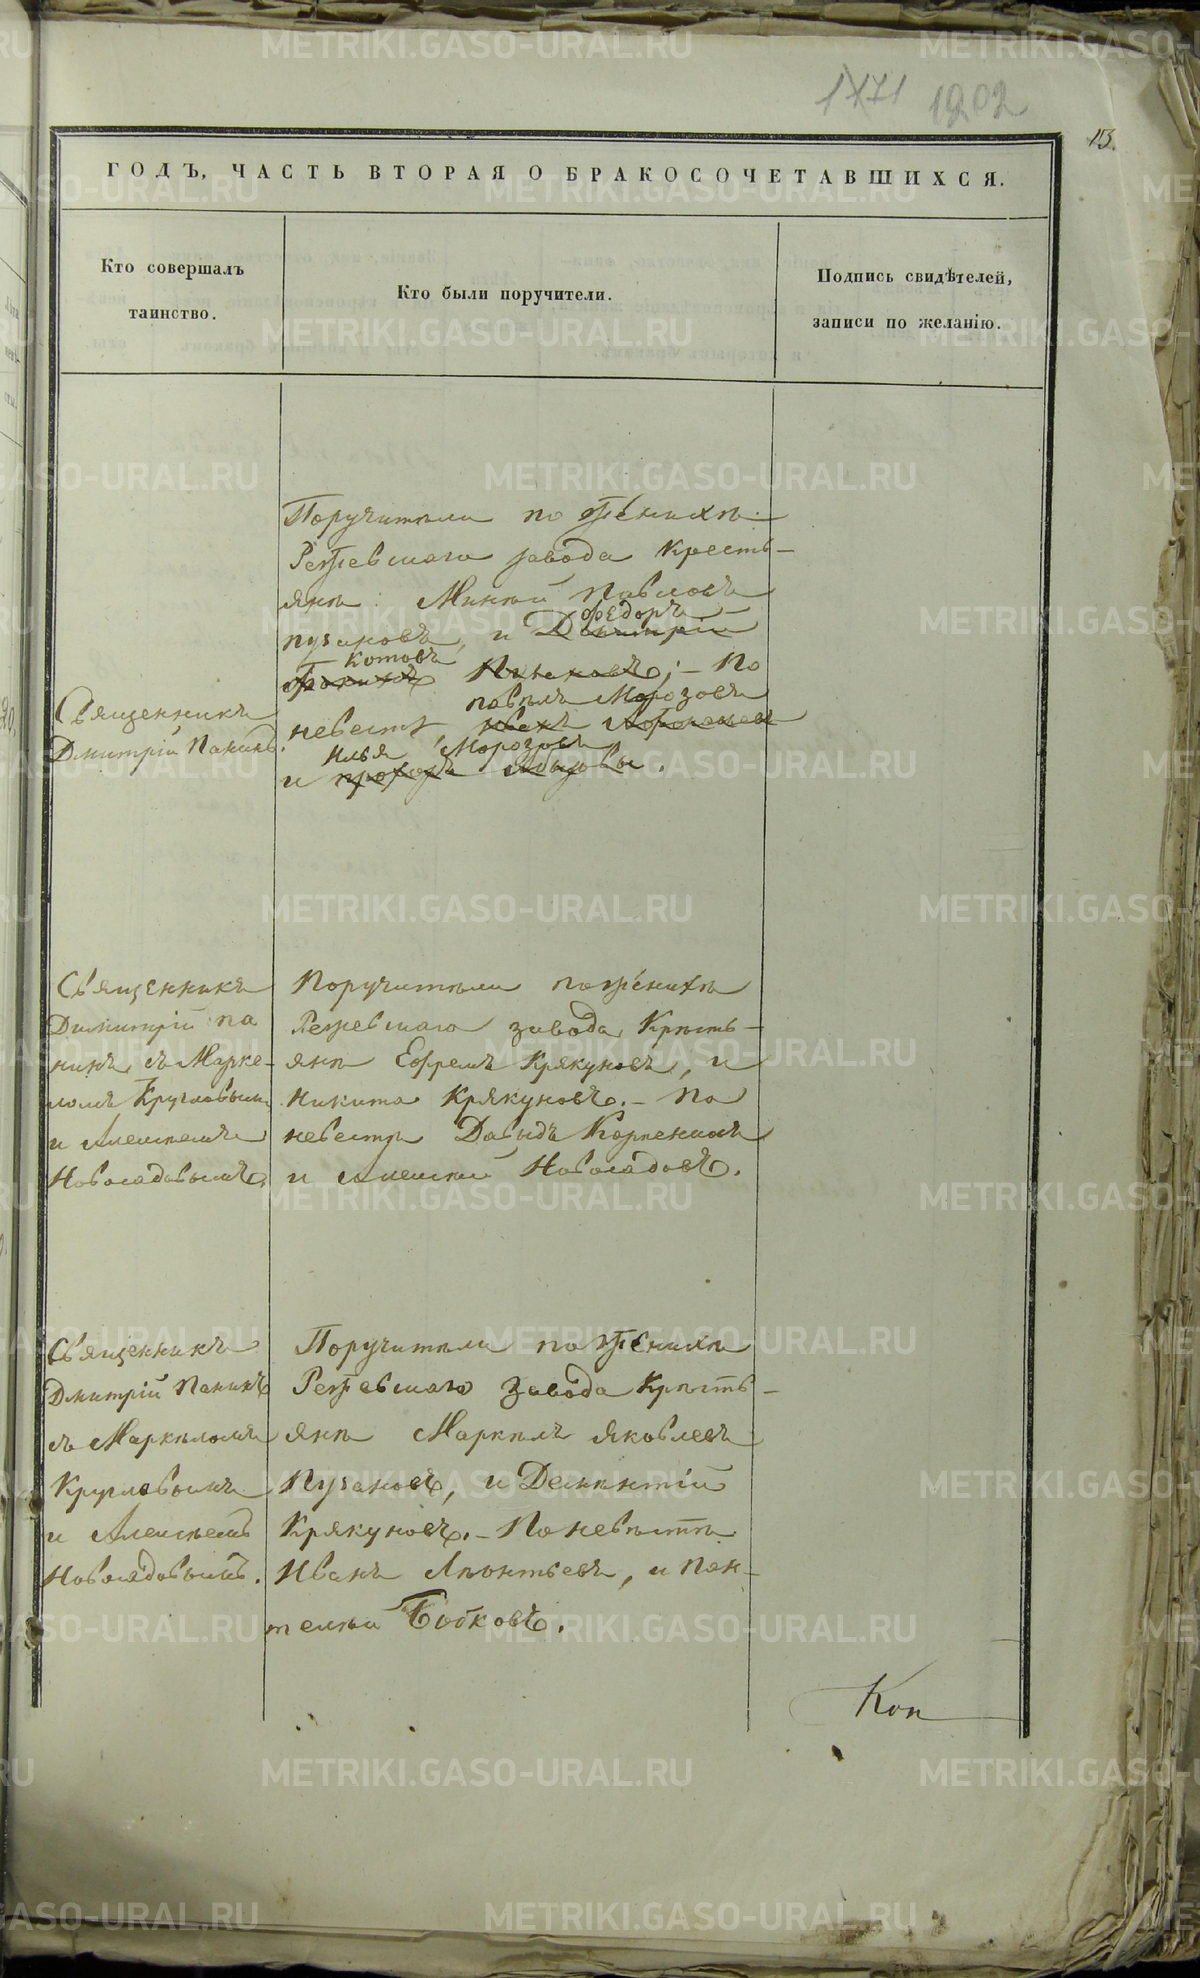 1171 1202
113.
ГОДЪ, ЧАСТЬ ВТОРАЯ О БРАКОСОЧЕТАВШИХСЯ.
Кто совершалъ
таинство.
Кто были поручители.
Подпись свидѣтелей,
записи по желанію.
Священникъ
Дмитрій Панинъ.
Поручители по женихѣ
Режевскаго завода Кресть-
янѣ Минѣй Павловъ
Федоръ
пузановъ, и Димитрій
Котовъ
По
павелъ Морозовъ
невестѣ, иванъ
Илья Морозовъ
и прохоръ
Священникъ
Димитрій Па
нинъ съ Марке-
ломъ Кругловымъ
и Алексѣемъ
Новосадовымъ.
Поручители по женихѣ
Режевскаго завода Кресть-
янѣ Ефремъ Крякуновъ, и
Никита Крякуновъ. – По
невестѣ Давыдъ
и Алексѣй Новосадовъ.
Священникъ
Дмитрій Панинъ
съ Маркеломъ
Кругловымъ
и Алексѣемъ
Новосадовымъ.
Поручители по женихѣ
Режевскаго завода Крѣсть-
янѣ Маркелъ Яковлевъ
Пузановъ, и Дементій
Крякуновъ. – По невѣстѣ
Иванъ Леонтьевъ, и Пан-
телѣй Бобковъ.
Коп
METRIKI.GASO-URAL.RU